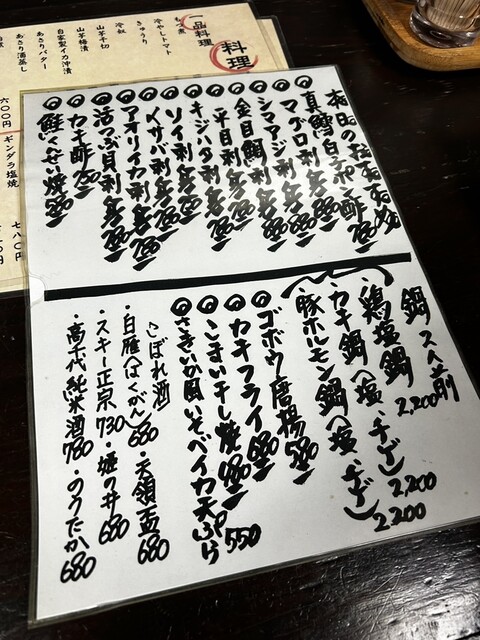 本日のおすすめ
◎真鱈白子ポン酢
◎マグロ刺身
◎シマアジ刺身
◎金目鯛刺身
◎平目刺身
◎キジハタ刺身
◎ソイ刺身
◎イサバ刺身
◎アオリイカ刺身
◎活つぶ貝刺身
◎カキ酢
◎鮭くんせい焼
鍋 2人前
・鶏塩鍋 2,200
・カキ鍋(塩、チゲ) 2,200
・豚ホルモン鍋(塩、チゲ) 2200
◎ゴボウ唐揚 580
◎カキフライ 680
◎こまい干し焼
◎さきいか風いそべイカ天ぷら 550
こぼれ酒
・白雁(はくがん) 680
・天領盃 680
・スキー正宗 730
・堀の井 680
・高千代純米酒 780
・のうたか 680
料理
一品料理
もつ煮
冷やしトマト
きゅうり
冷奴
山芋千切
山芋短漬
自家製イカ沖漬
あさりバター
あさり酒蒸し
六〇〇円
ギンダラ塩焼
七八〇円